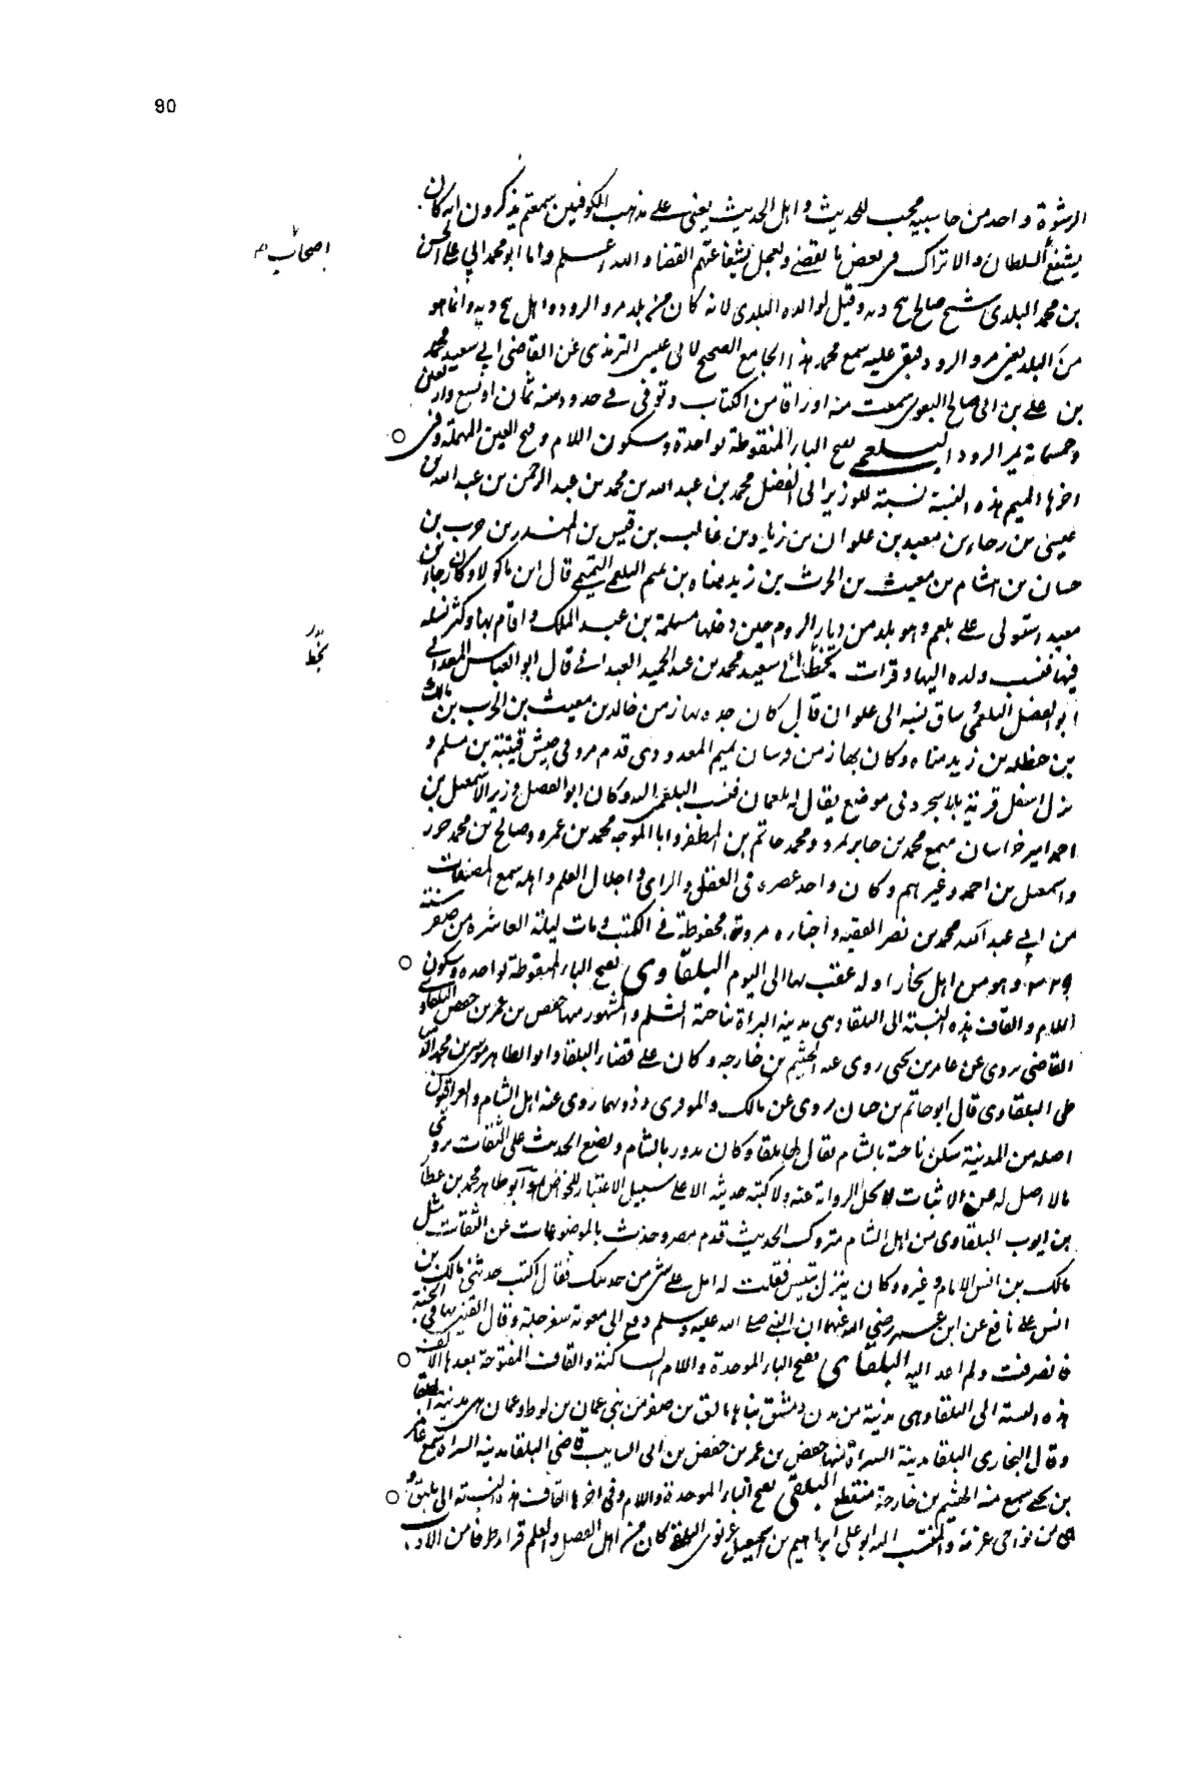 90
الرشوة واحد من حاسبيه محب للحديث واهل الحديث يعنى على مذهب الكوفيين سمعتهم يذكرون انه كان
اصحاب
يشفع السلطان والاتراك فى بعض ما يقضى القضا والله اعلم وابا ابو محمد ابي على الحسن
بن محمد البلدى شيخ صالح وقيل لوالده البلدى لانه كان من بلد مرو الرود واهل وانما هو
من البلد يعنى مرو الرود فبقى عليه سمع محمد هذا الجامع الصحيح لابى عيسى الترمذى عن القاضى ابى سعيد محمد
بن على بن ابى صالح البغوى سمعت منه اوراقا من الكتاب وتوفى فى حدود سنة ثمان او تسع واربعين
وخمسمائة بمرو الرود البلعمى بفتح الباء المنقوطة بواحدة وسكون اللام وفتح العين المهملة وفى
اخرها الميم هذه النسبة نسبة للوزير ابى الفضل محمد بن عبد الله بن محمد بن عبد الرحمن بن عبد الله بن
عيسى بن رجاء بن معبد بن علوان بن زياد بن غالب بن قيس بن المنذر بن حرب بن
حسان بن هشام بن مغيث بن الحرث بن زيد مناه بن تميم البلعمى التميمى قال ابن ماكولا وكان رجاء بن
معبد استولى على بلعم وهو بلد من ديار الروم حين دخلها مسلمة بن عبد الملك واقام بها وكثر نسله
بخط
فيها فنسب ولده اليها وقرات بخط ابى سعيد محمد بن عبد الحميد العبدانى قال ابو العباس المعدانى
ابو الفضل البلعمى ساق نسبه الى علوان قال كان جده بهاز من خالد بن مغيث بن الحرث بن مالك
بن حنظله بن زيد مناه وكان بهاز من فرسان تميم المعدودى قدم مرو فى جيش قتيبة بن مسلم و
نزل اسفل قرية بلاسجرد فى موضع يقال له بلعمان فنسب البلعمى اليه وكان ابو الفضل وزير الاسمعيل بن
احمد امير خراسان سمع محمد بن جابر بمرو ومحمد حاتم بن المظفر وابا الموجه محمد بن عمرو وصالح بن محمد
واسمعيل بن احمد وغيرهم وكان واحد عصره فى العقل والراى واجلال العلم واهله سمع المصنفات
من ابى عبد الله محمد بن نصر الفقيه واخباره مروية محفوظة فى الكتب ومات ليلة العاشرة من صفر سنة
٣٢٩ وهو من اهل بخارا وله عقب بها الى اليوم البلقاوى بفتح الباء المنقوطة بواحده وسكون
اللام والقاف هذه النسبة الى البلقا وهى مدينة الشراة بناحية الشام والمشهور منها حفص بن عمر بن حفص البلقاوى
القاضى يروى عن عامر بن يحيى روى عنه الهيثم بن خارجه وكان على قضاء البلقا وابو الطاهر موسى بن محمد
البلقاوى قال ابو حاتم بن حبان يروى عن مالك والموقرى وذويهما روى عنه اهل الشام والعراقيون
اصله من المدينة سكن ناحية بالشام يقال لها بلقا وكان يدور بالشام ويضع الحديث على الثقات يروى
مالا اصل له عن الاثبات لا تحل الرواية عنه ولا كتبة حديثه الا على سبيل الاعتبار للخواص ابو طاهر محمد بن عطا
بن ايوب البلقاوى من اهل الشام متروك الحديث قدم مصر وحدث بالموضوعات عن الثقات مثل
مالك بن انس الامام وغيره وكان ينزل تنيس فقلت له امل على شى من حديثك فقال اكتب حدثنى مالك بن
انس عن نافع عن ابن عمر رضى الله عنهما ان النبى صلى الله عليه وسلم دفع الى معوية سفرجلة وقال القنى بها فى الجنة
فانصرفت ولم اعد اليه البلقاى بفتح الباء الموحدة واللام الساكنة والقاف المفتوحة بعدها الالف
هذه النسبة الى البلقا وهى مدينة من مدن دمشق بناها بالق بن صفو من بنى عمان بن لوط وعمان هى مدينة البلقا
وقال البخارى البلقا مدينة الشراة منها حفص بن عمر بن حفص بن ابى السايب قاضى البلقا مدينة الشراة سمع عامر
بن يحيى سمع منه الهيثم بن خارجة منقطع البلقى بفتح الباء الموحدة واللام وفى اخرها القاف هذه النسبة الى بلق و
هى من نواحى غزنة والمنتسب اليه ابو على ابراهيم بن اسمعيل غزنوى البلقى كان من اهل الفضل والعلم قرا طرفا من الادب